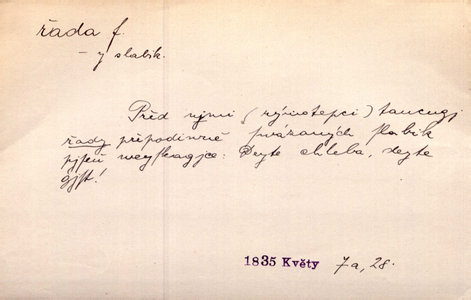 řada f.
– y slabik.
Před nimi (rýmotepci) tancugj
řady přepodiwně swázaných slabik
pjseň weyskagjce: Deyte chleba, deyte
gjst!
1835 Květy 7a, 28.